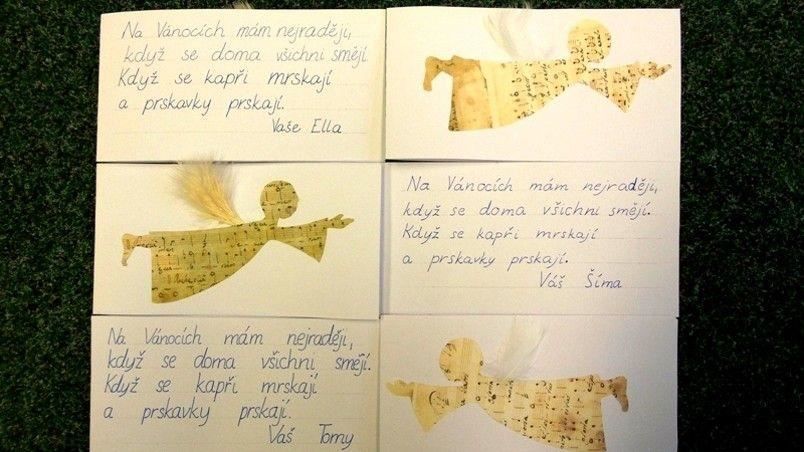 Na Vánocích mám nejraději,
když se doma všichni smějí.
Když se kapři mrskají
a prskavky prskají.
Vaše Ella
Na Vánocích mám nejraději,
když se doma všichni smějí.
Když se kapři mrskají
a prskavky prskají.
Váš Šíma
Na Vánocích mám nejraději,
když se doma všichni smějí.
Když se kapři mrskají
a prskavky prskají.
Vaš Tomy